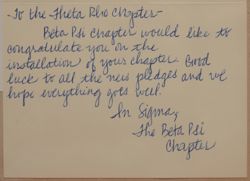 -To the Theta Rho Chapter-
Beta Psi Chapter would like to
congratulate you on the
installation of your chapter. Good
luck to all the new pledges and we
hope everything goes well.
In Sigma,
The Beta Psi
Chapter